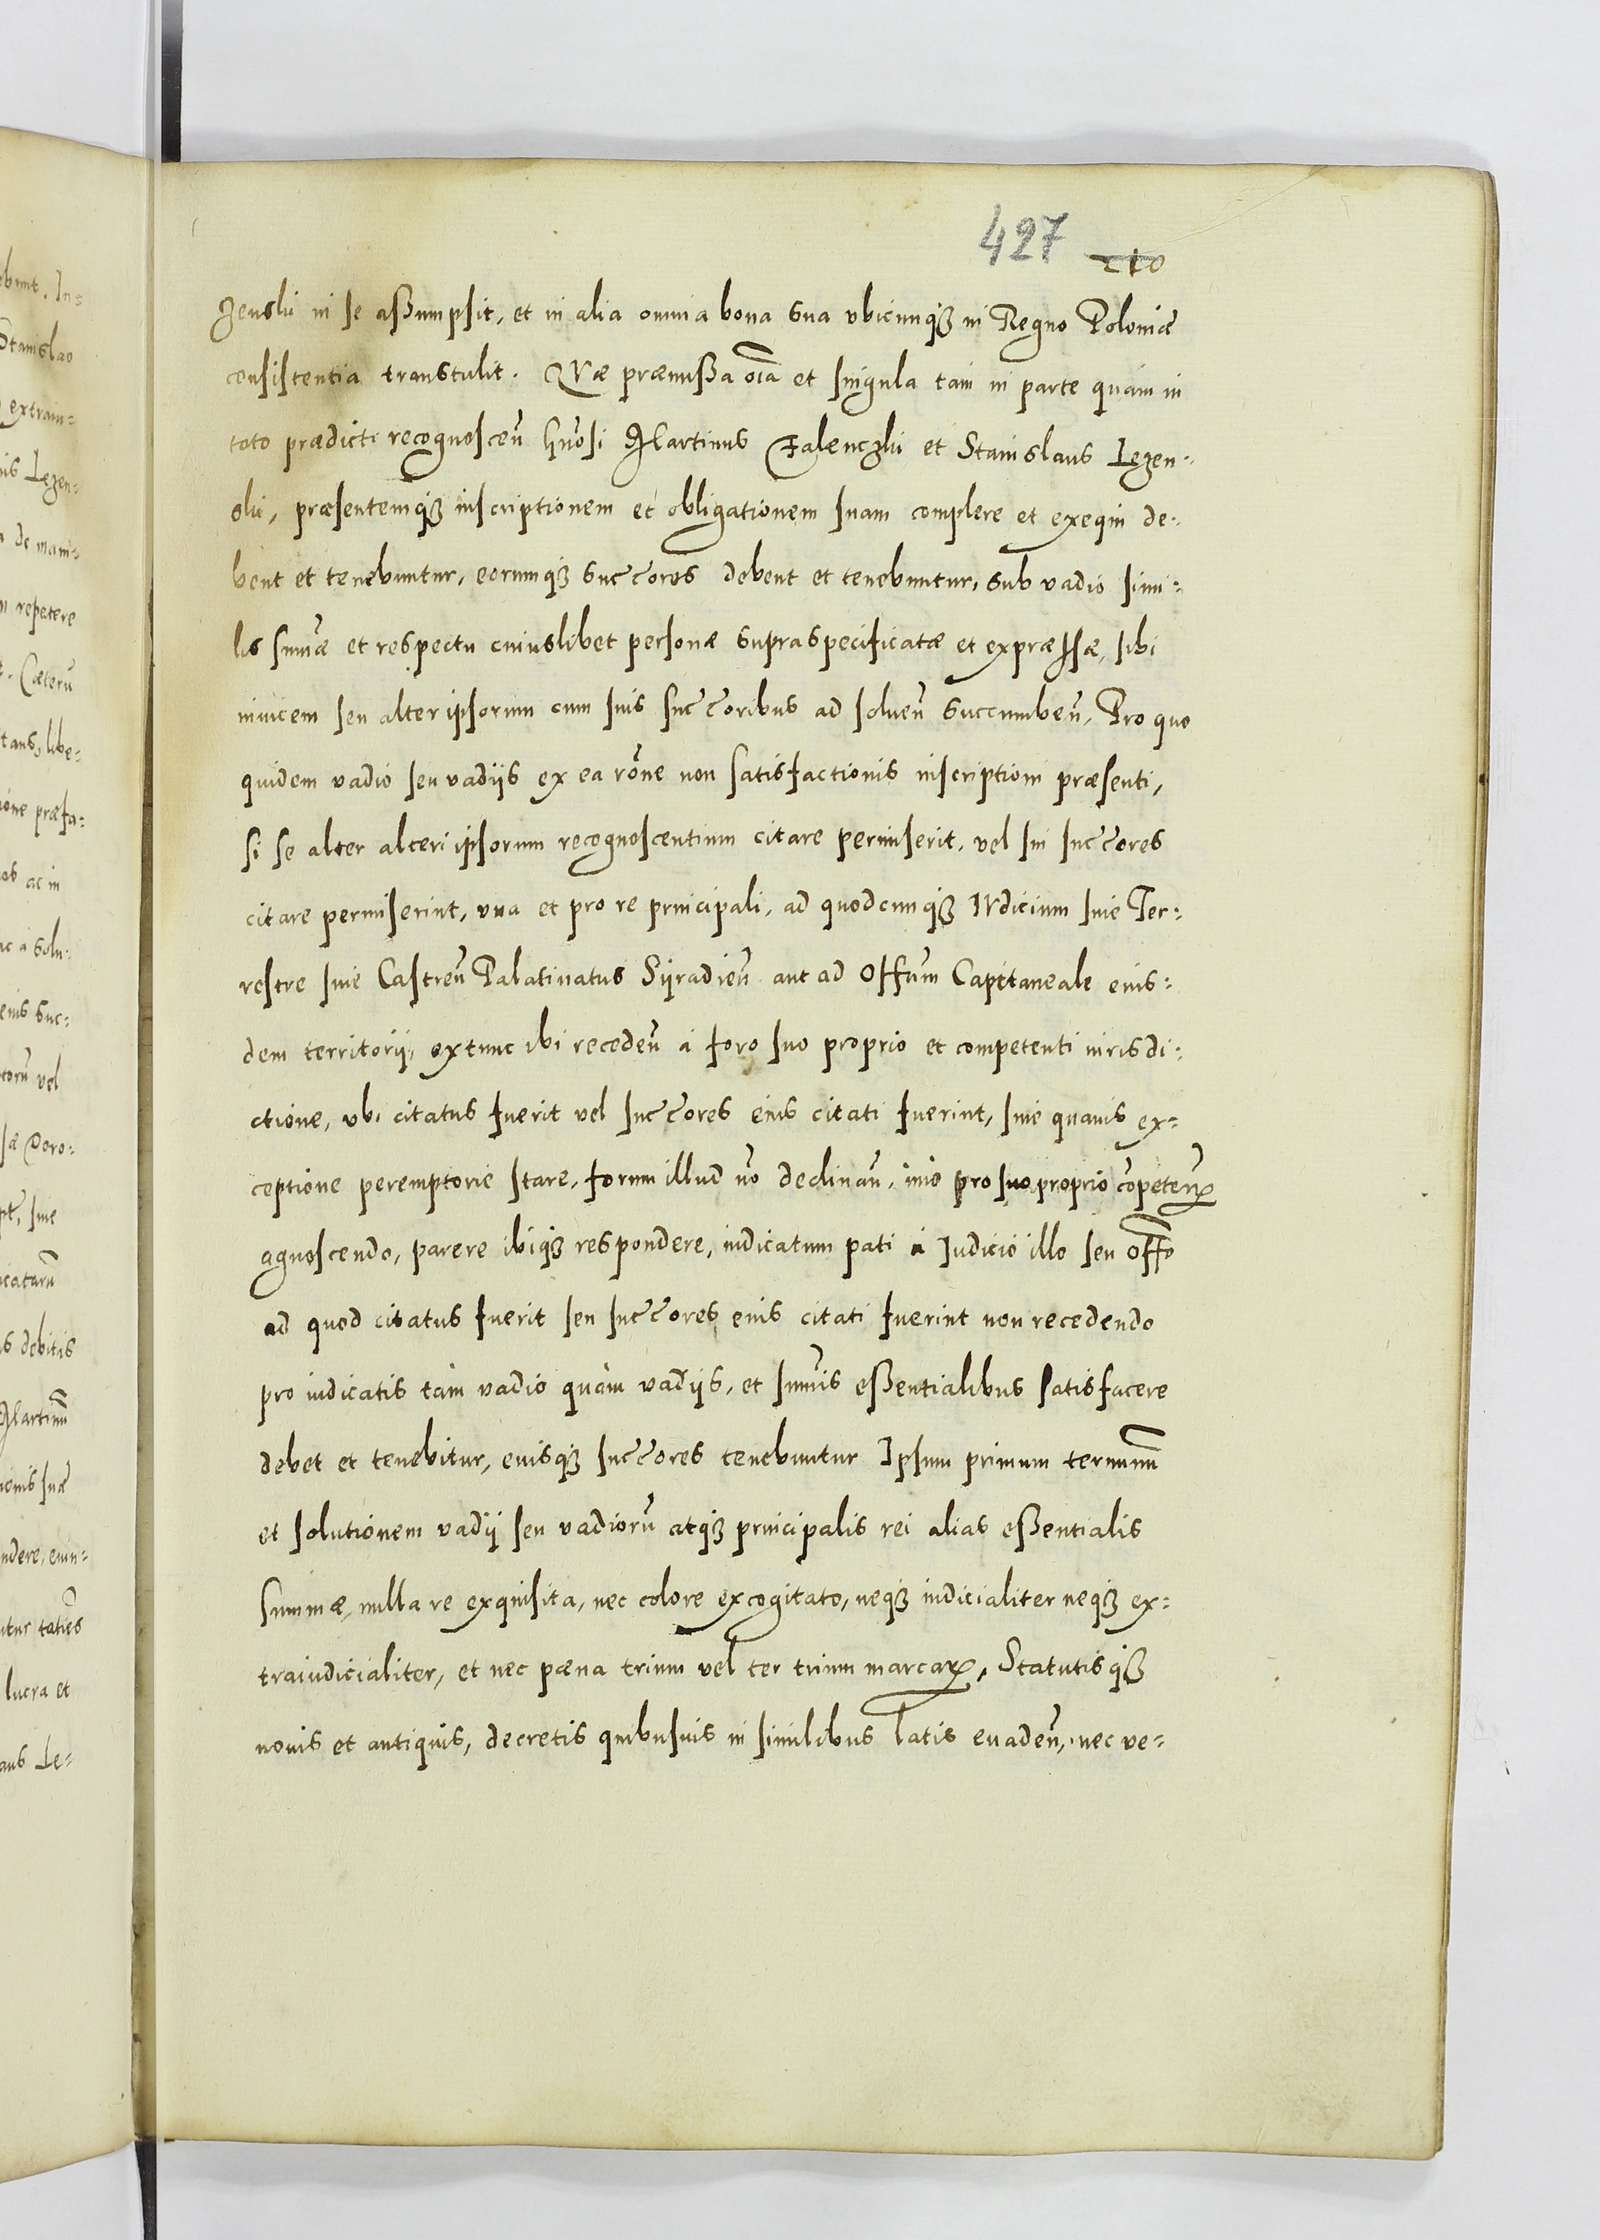 427 210
zenski in se assumpsit, et in alia omnia bona sua vbicunq3 in Regno Poloniæ
consistentia transtulit. Quæ præmissa oīa et singula tam in parte quàm in
toto prædicti recognoscen̄ Gn̄osi Martinus Zalenczki et Stanislaus Lezen-
ski, præsentemq3 inscriptionem et obligationem suam complere et exequi de-
bent et tenebuntur, eorumq3 succ̄cores debent et tenebuntur, sub vadio simi-
lis sum̄æ et respectu cuiuslibet personæ supraspecificatæ et expræssæ, sibi
inuicem seu alter ipsorum cum suis succ̄oribus ad soluen̄ succumben̄. Pro quo
quidem vadio seu vadijs ex ea rōne non satisfactionis inscriptioni præsenti,
si se alter alteri ipsorum recognoscentium citare permiserit, vel sui succ̄ores
citare permiserint, vna et pro re principali, ad quodcunq3 Iudicium siue Ter-
restre siue Castren̄ Palatinatus Syradien̄ aut ad Offm̄ Capitaneale eius-
dem territorij, extunc ibi receden̄ à foro suo proprio et competenti iurisdi-
ctione, vbi citatus fuerit vel succ̄ores eius citati fuerint, sine quauis ex-
ceptione peremptorie stare, forum illud nō declinan̄, imò pro suo proprio cōpeten̄
agnoscendo, parere ibiq3 respondere, iudicatum pati à Iudicio illo seu Offō
ad quod citatus fuerit seu succ̄ores eius citati fuerint non recedendo
pro iudicatis tàm vadio quàm vadijs, et sum̄is essentialibus satisfacere
debet et tenebitur, eiusq3 succ̄ores tenebuntur Ipsum primum terminū
et solutionem vadij seu vadiorū atq3 principalis rei alias essentialis
summæ, nulla re exquisita, nec colore excogitato, neq3 iudicialiter neq3 ex-
traiudicialiter, et nec pæna trium vel ter trium marcarꝝ, Statutisq3
nouis et antiquis, decretis quibusuis in similibus latis euaden̄, nec ve-